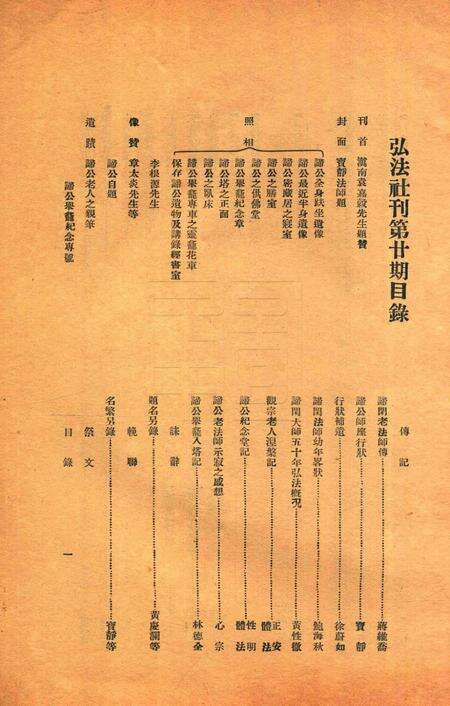 弘法社刊第廿期目錄
刊首　滇南袁嘉穀先生題贊
封面　寶靜法師題
照相
諦公全身趺坐遺像
諦公最近半身遺像
諦公密藏居之寢室
諦公之勝室
諦公之供佛堂
諦公舉龕紀念章
諦公塔之正面
諦公之臥床
諦公舉龕專車之靈龕花車
保存諦公遺物及講錄經書室
像贊　李根源先生
章太炎先生等
諦公自題
遺蹟　諦公老人之親筆
諦公舉龕紀念專號
傳記
諦閑老法師傳……蔣維喬
諦公師座行狀……寶靜
行狀補遺……徐蔚如
諦閑法師幼年畧狀……鮑海秋
諦閑大師五十年弘法概況……黃性徹
觀宗老人湼槃記……正安　體法
諦公紀念堂記……性明　體法
諦公老法師示寂之感想……心宗
諦公舉龕入塔記……林德全
誄辭
題名另錄……黃慶瀾等
輓聯
名繁另錄……寶靜等
祭文
目錄　一